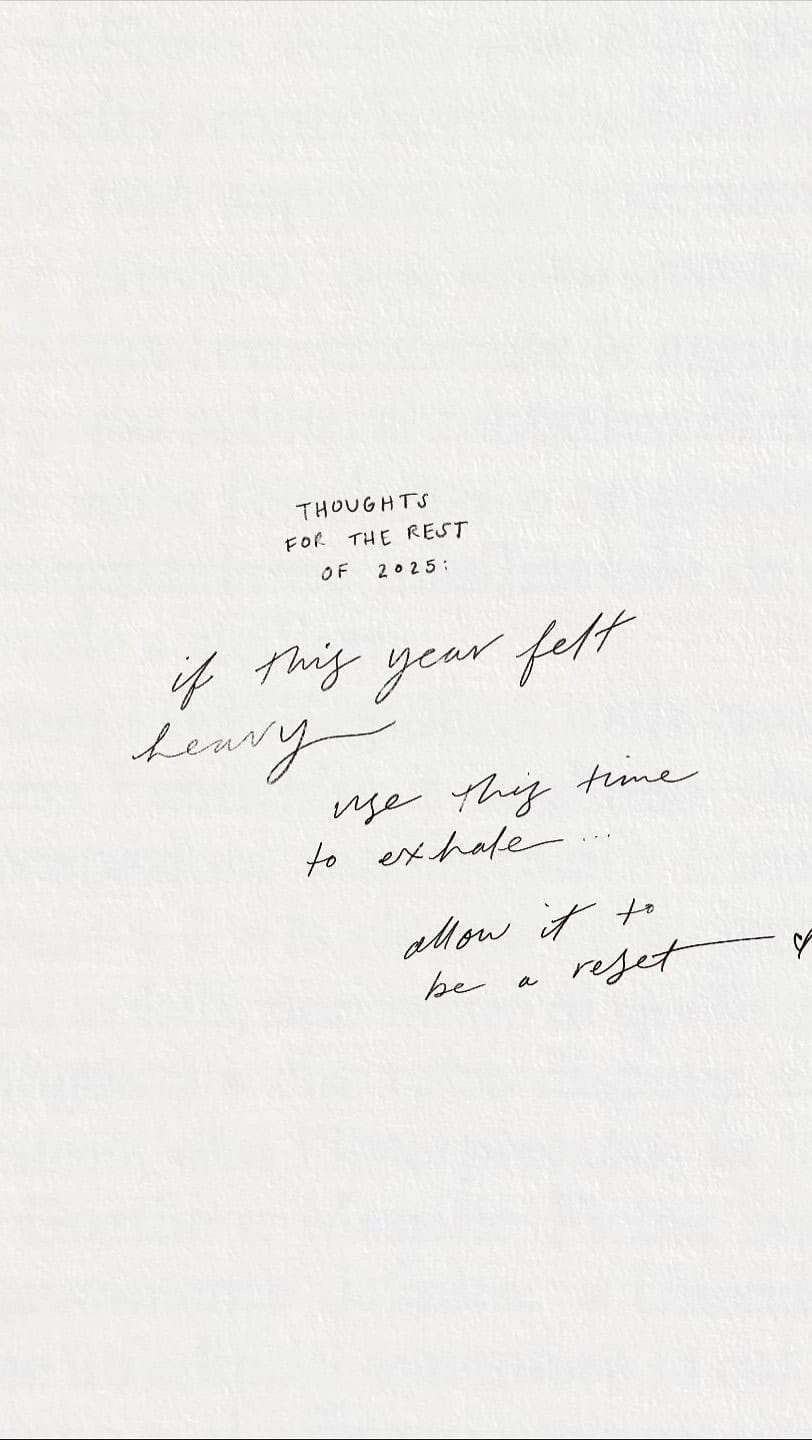 THOUGHTS
FOR THE REST
OF 2025:
if this year felt
heavy
use this time
to exhale ...
allow it to
be a reset